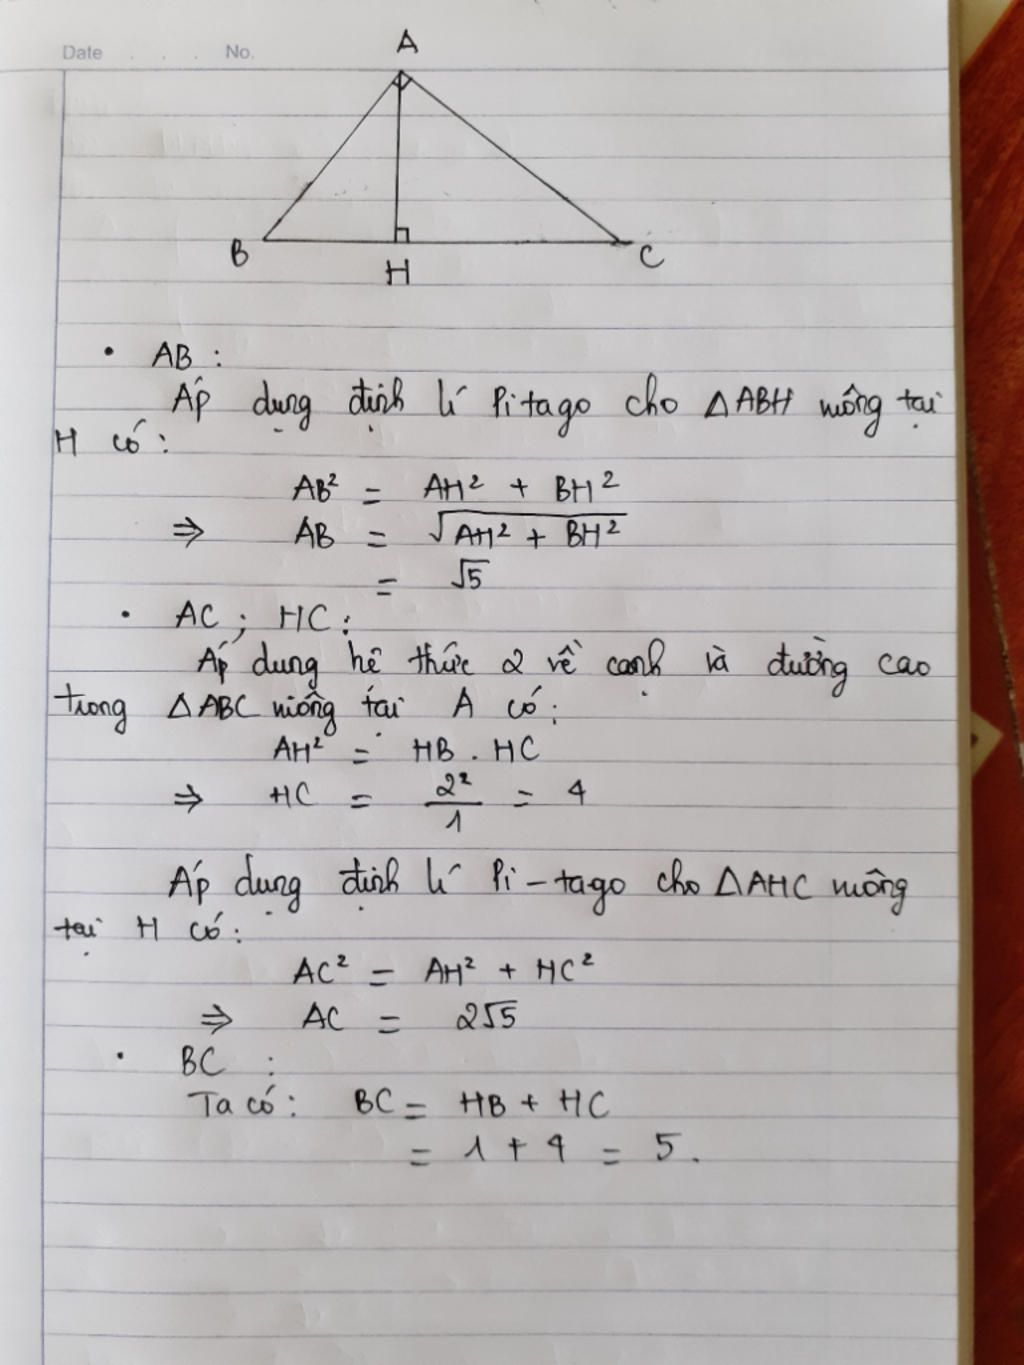 Date . . . No.
A
B
H
C
• AB :
Áp dụng định lí Pitago cho △ABH vuông tại
H có:
AB² = AH² + BH²
⇒ AB = √(AH² + BH²)
= √5
• AC ; HC :
Áp dụng hệ thức 2 về cạnh và đường cao
trong △ABC vuông tại A có:
AH² = HB . HC
⇒ HC = 2²/1 = 4
Áp dụng định lí Pi-tago cho △AHC vuông
tại H có:
AC² = AH² + HC²
⇒ AC = 2√5
• BC :
Ta có: BC = HB + HC
= 1 + 4 = 5.